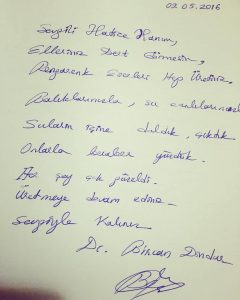 02.05.2016
Sevgili Hatice Hanım,
Elleriniz Dert Görmesin,
Rengarenk Eserleri Hep Üretiniz.
Balıklarımızla, su canlılarımızla
Suların içine daldık, çıktık
Onlarla beraber yüzdük.
Her şey çok güzeldi.
Üretmeye devam ediniz.
Sevgiyle Kalınız
Dr. Bircan